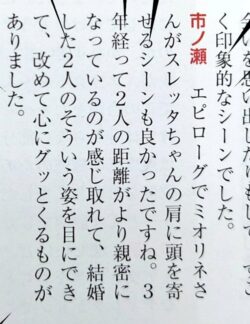 く印象的なシーンでした。
市ノ瀬 エピローグでミオリネさ
んがスレッタちゃんの肩に頭を寄
せるシーンも良かったですね。3
年経って2人の距離がより親密に
なっているのが感じ取れて、結婚
した2人のそういう姿を目にでき
て、改めて心にグッとくるものが
ありました。